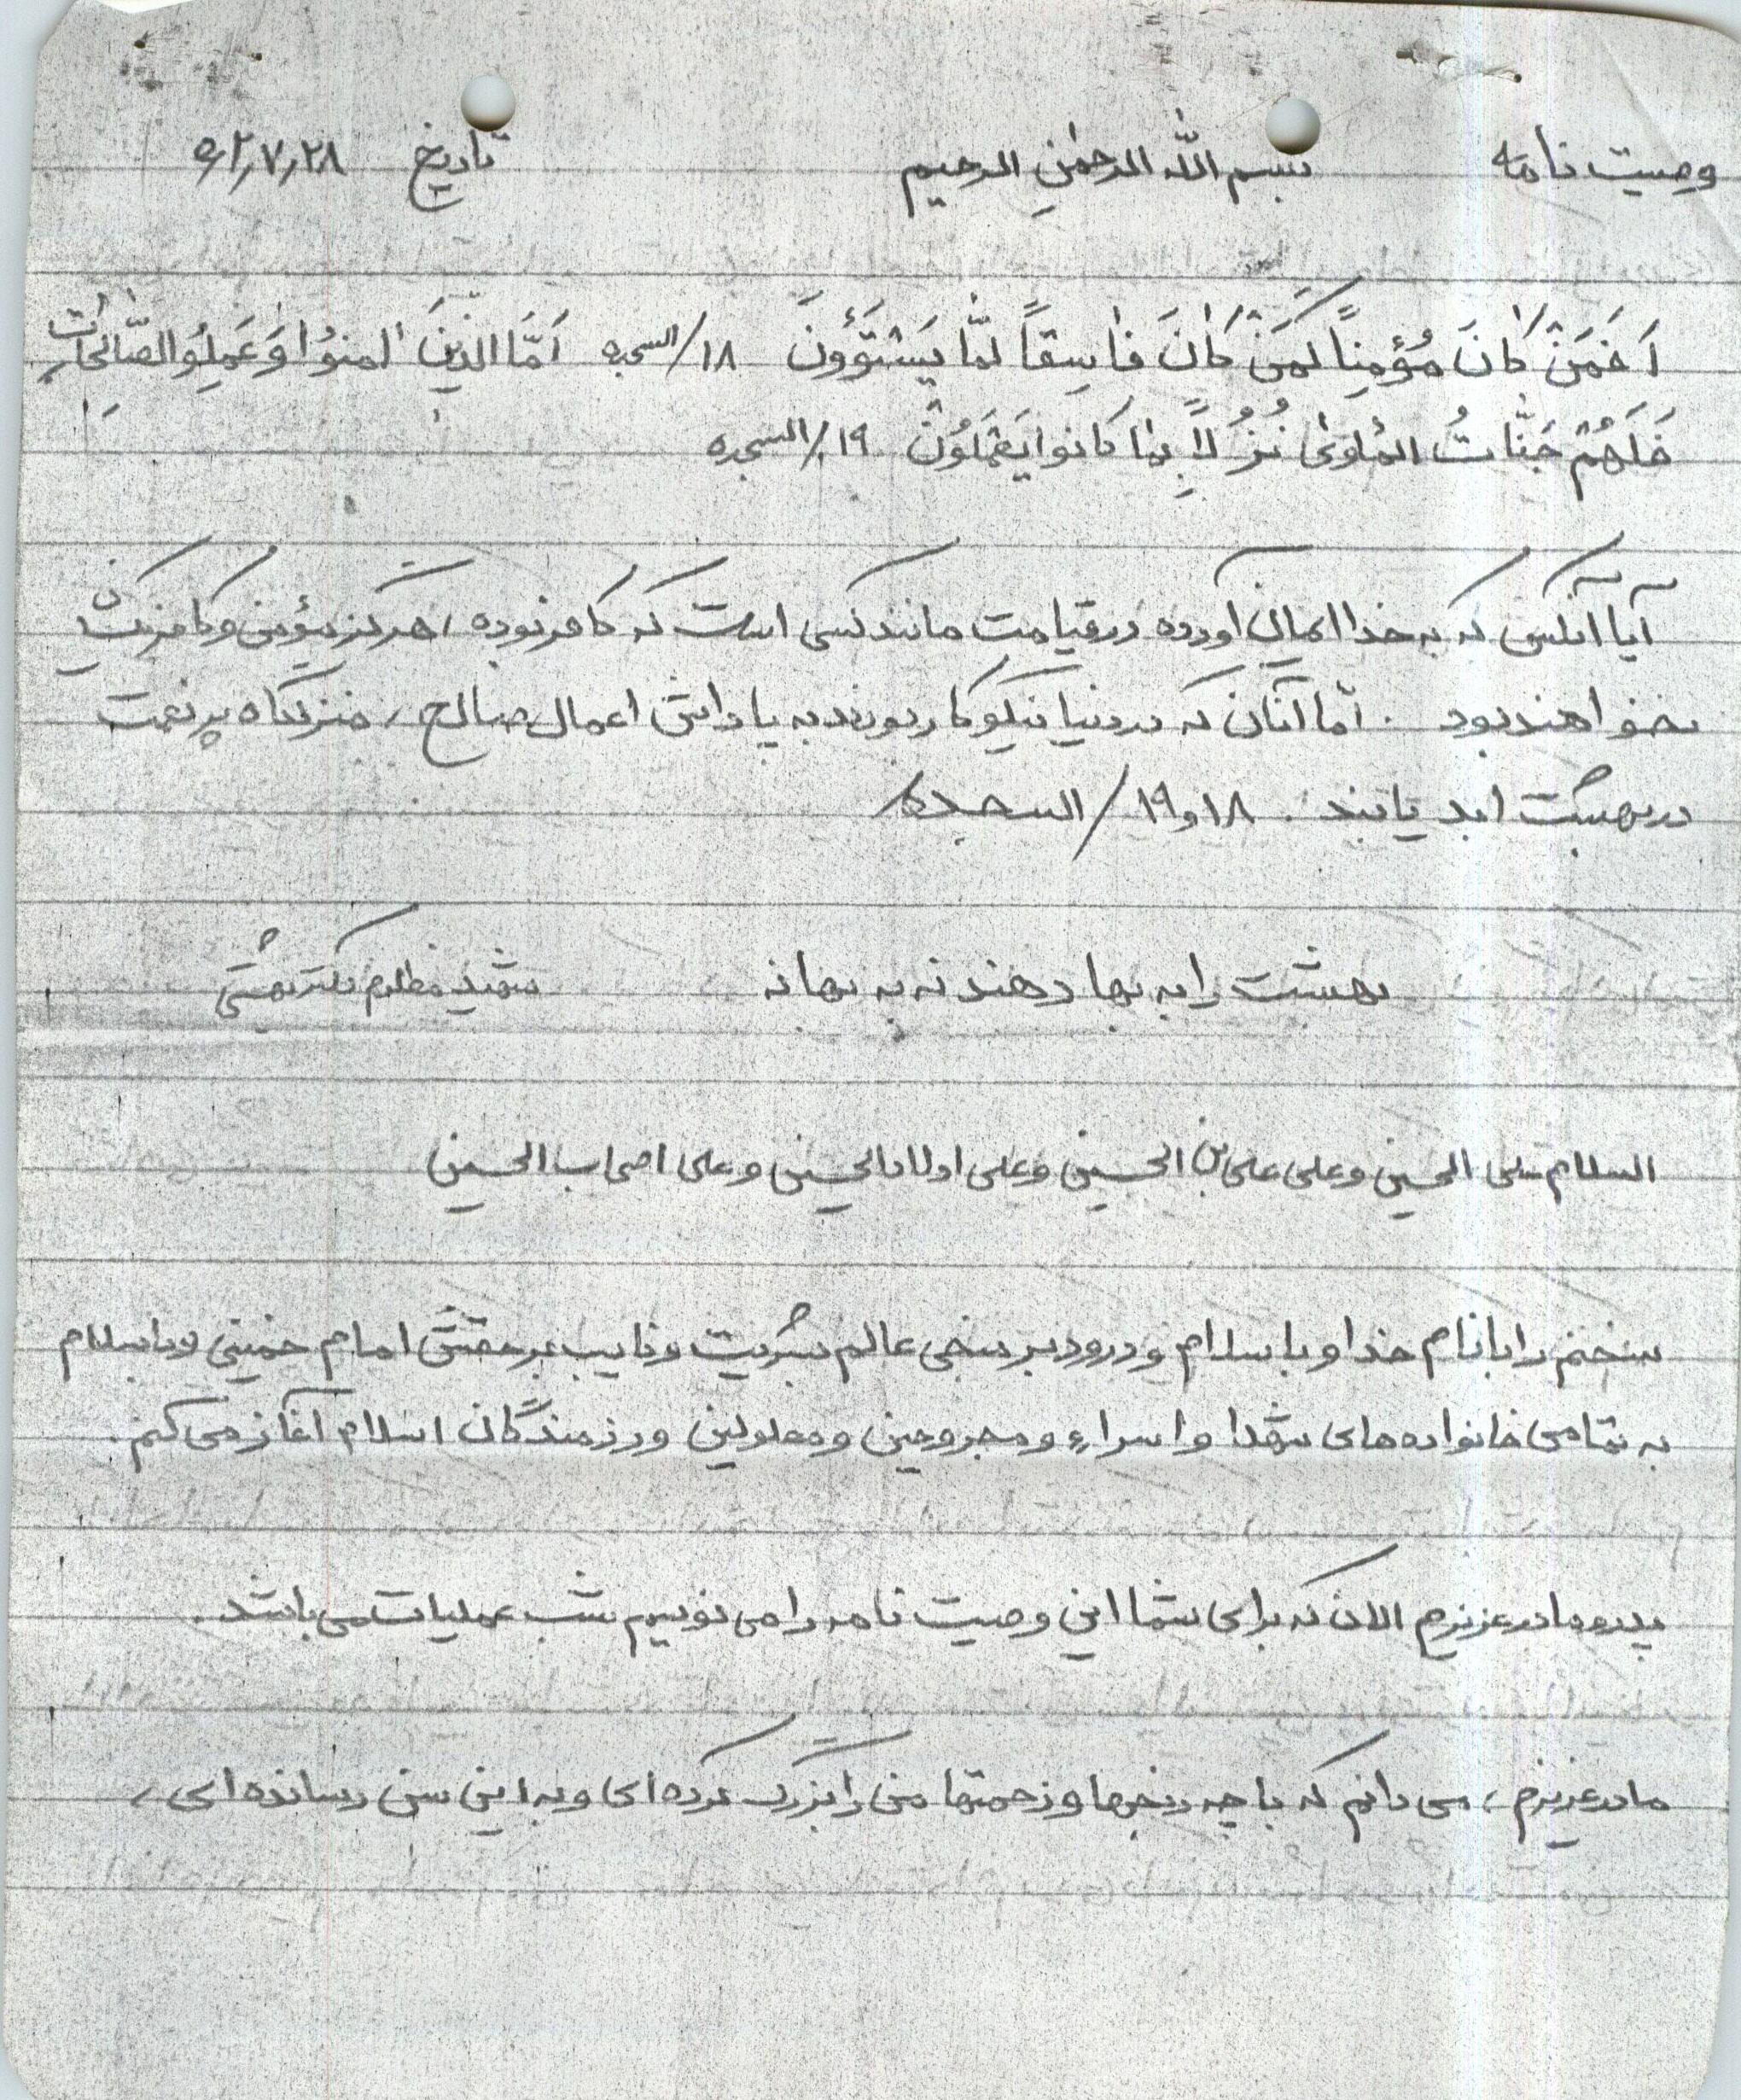 وصیت نامه بسم الله الرحمن الرحیم تاریخ
اَفَمَنْ کانَ مُؤْمِناً کَمَنْ کانَ فاسِقاً لا یَسْتَوُونَ ۱۸/السجده اَمَّا الَّذینَ امَنوُا وَ عَمِلوُا الصّالِحاتِ
فَلَهُمْ جَنّاتُ المَاْوی نُزُلاً بِما کانوا یَعْمَلوُنَ ۱۹/السجده
آیا آنکس که به خدا ایمان آورده در قیامت مانند کسی است که کافر بوده، هرگز مؤمن و کافر یکسان
نخواهند بود. امّا آنان که در دنیا نیکوکار بودند به پاداش اعمال صالح، منزلگاه پر نعمت
در بهشت ابد یابند. ۱۸و۱۹/السجده
بهشت را به بها دهند نه به بهانه شهید مظلوم دکتر بهشتی
السلام علی الحسین و علی علی بن الحسین و علی اولاد الحسین و علی اصحاب الحسین
سخنم را با نام خدا و با سلام و درود بر منجی عالم بشریت و نایب بر حقش امام خمینی و با سلام
به تمامی خانواده های شهدا و اسراء و مجروحین و معلولین و رزمندگان اسلام آغاز می کنم.
پدر و مادر عزیزم الان که برای شما این وصیت نامه را می نویسم شب عملیات می باشد.
مادر عزیزم، می دانم که با چه رنجها و زحمتها من را بزرگ کرده ای و به این سن رسانده ای،